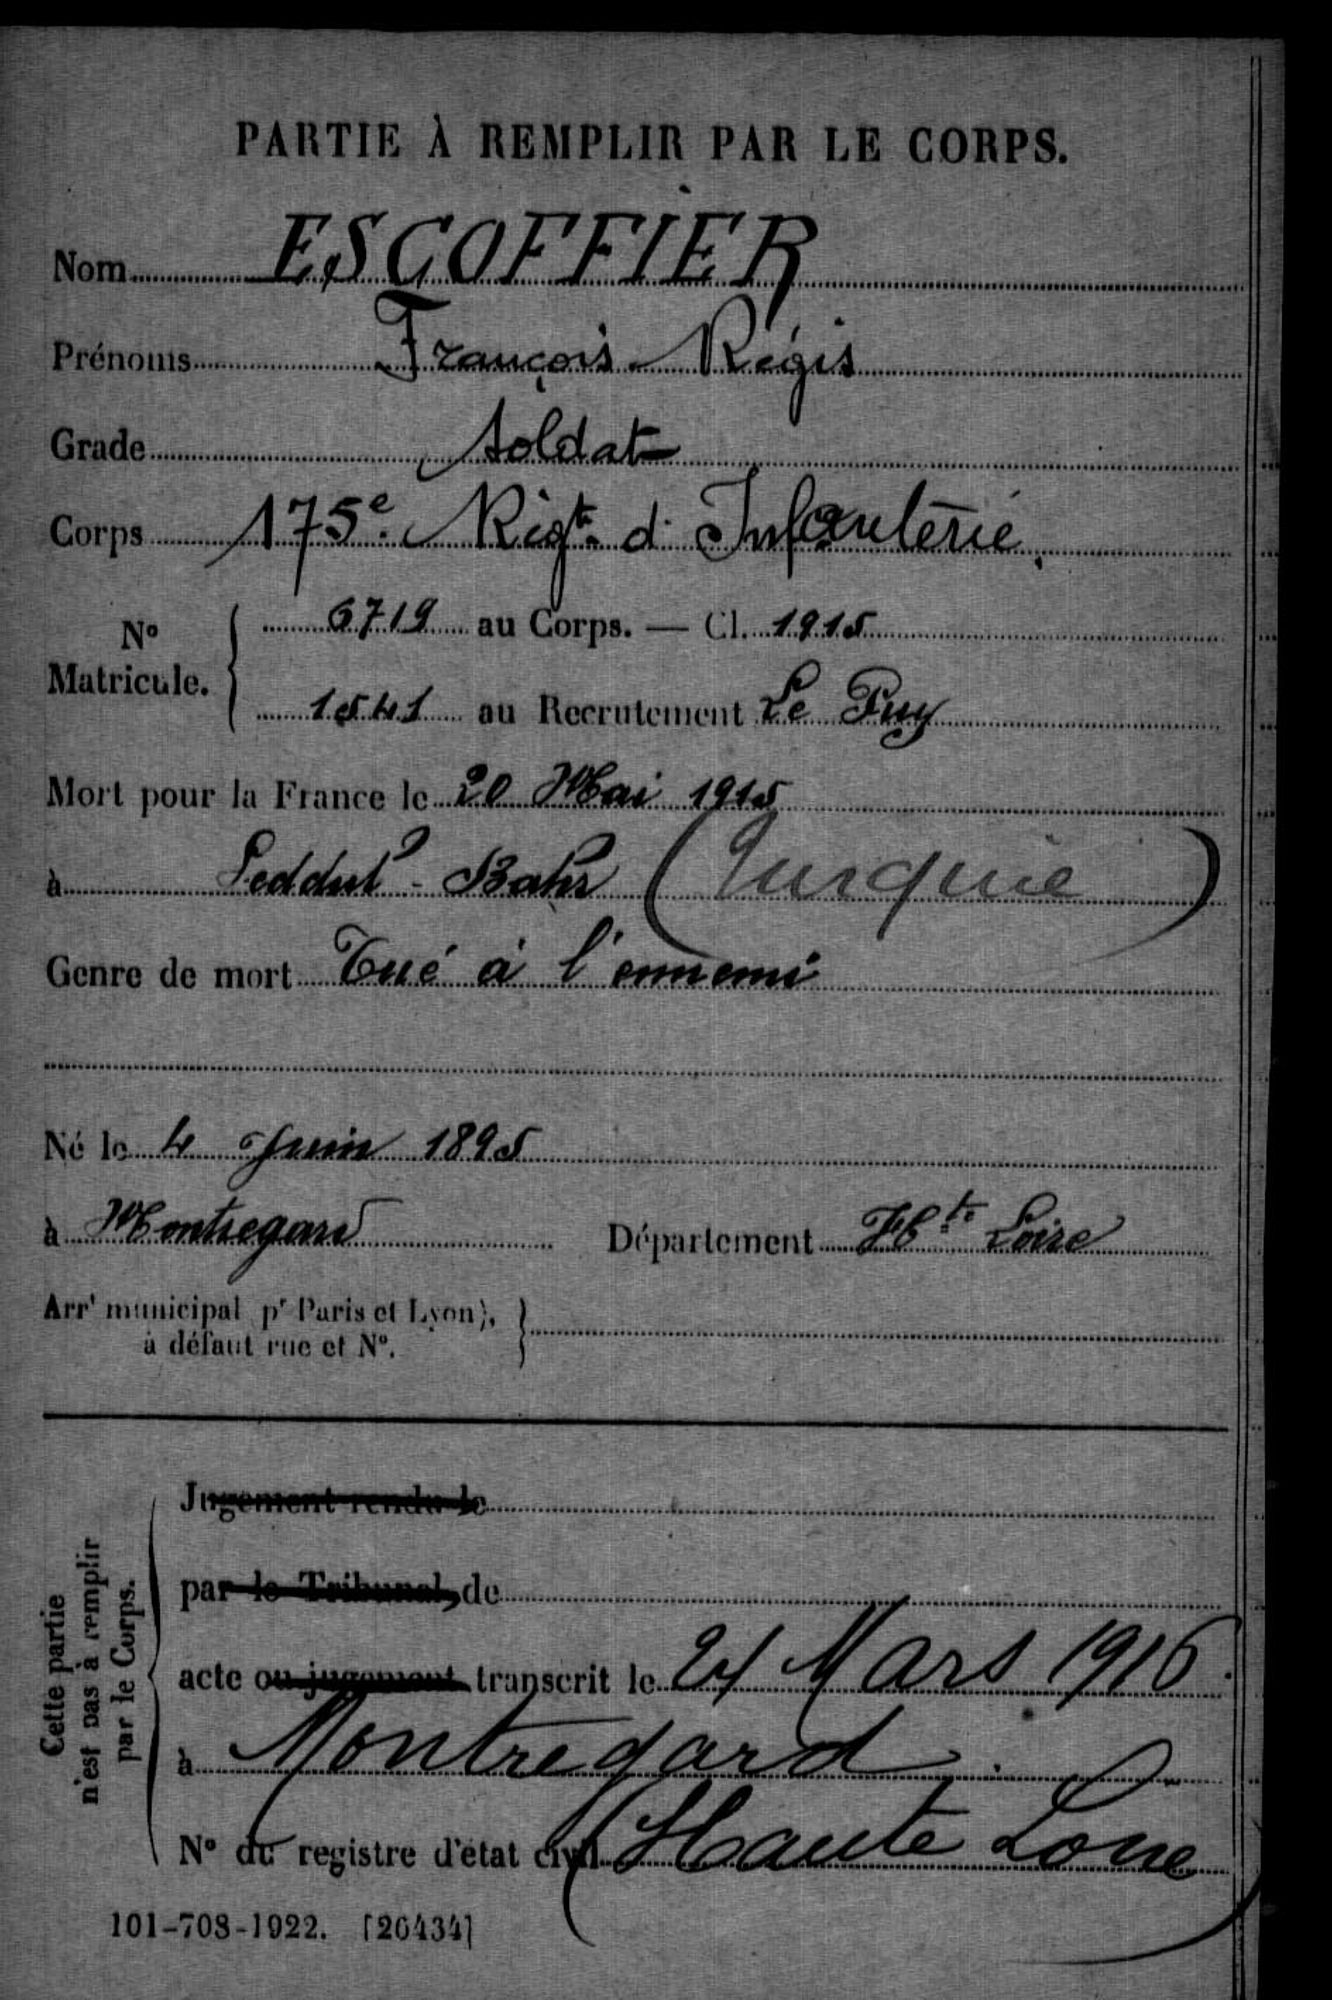 PARTIE À REMPLIR PAR LE CORPS.
Nom ESCOFFIER
Prénoms François Régis
Grade Soldat
Corps 175e Rigt. d' Infanterie.
N° Matricule. { 6719 au Corps. — Cl. 1915
1541 au Recrutement Le Puy
Mort pour la France le 20 Mai 1915
à Seddul-Bahr (Turquie)
Genre de mort Tué à l'ennemi
Né le 4 Juin 1895
à Montregard Département Hte Loire
Arrt municipal pr Paris et Lyon),
à défaut rue et N°.
Cette partie
n'est pas à remplir
par le Corps.
Jugement rendu le
par le Tribunal, de
acte ou jugement transcrit le 21 Mars 1916.
à Montregard.
N° du registre d'état civil (Haute Loire)
101-708-1922. [26434]